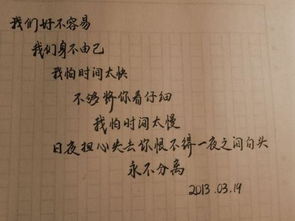 我们好不容易
我们身不由己
我怕时间太快
不够将你看仔细
我怕时间太慢
日夜担心失去你恨不得一夜之间白头
永不分离
2013.03.19